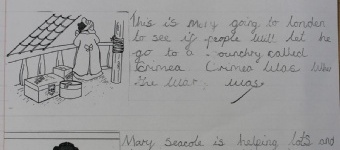 This is Mary going to london
to see if people will let he
go to a country called
crimea. Crimea was wher
the war was.
Mary seacole is helping lots and